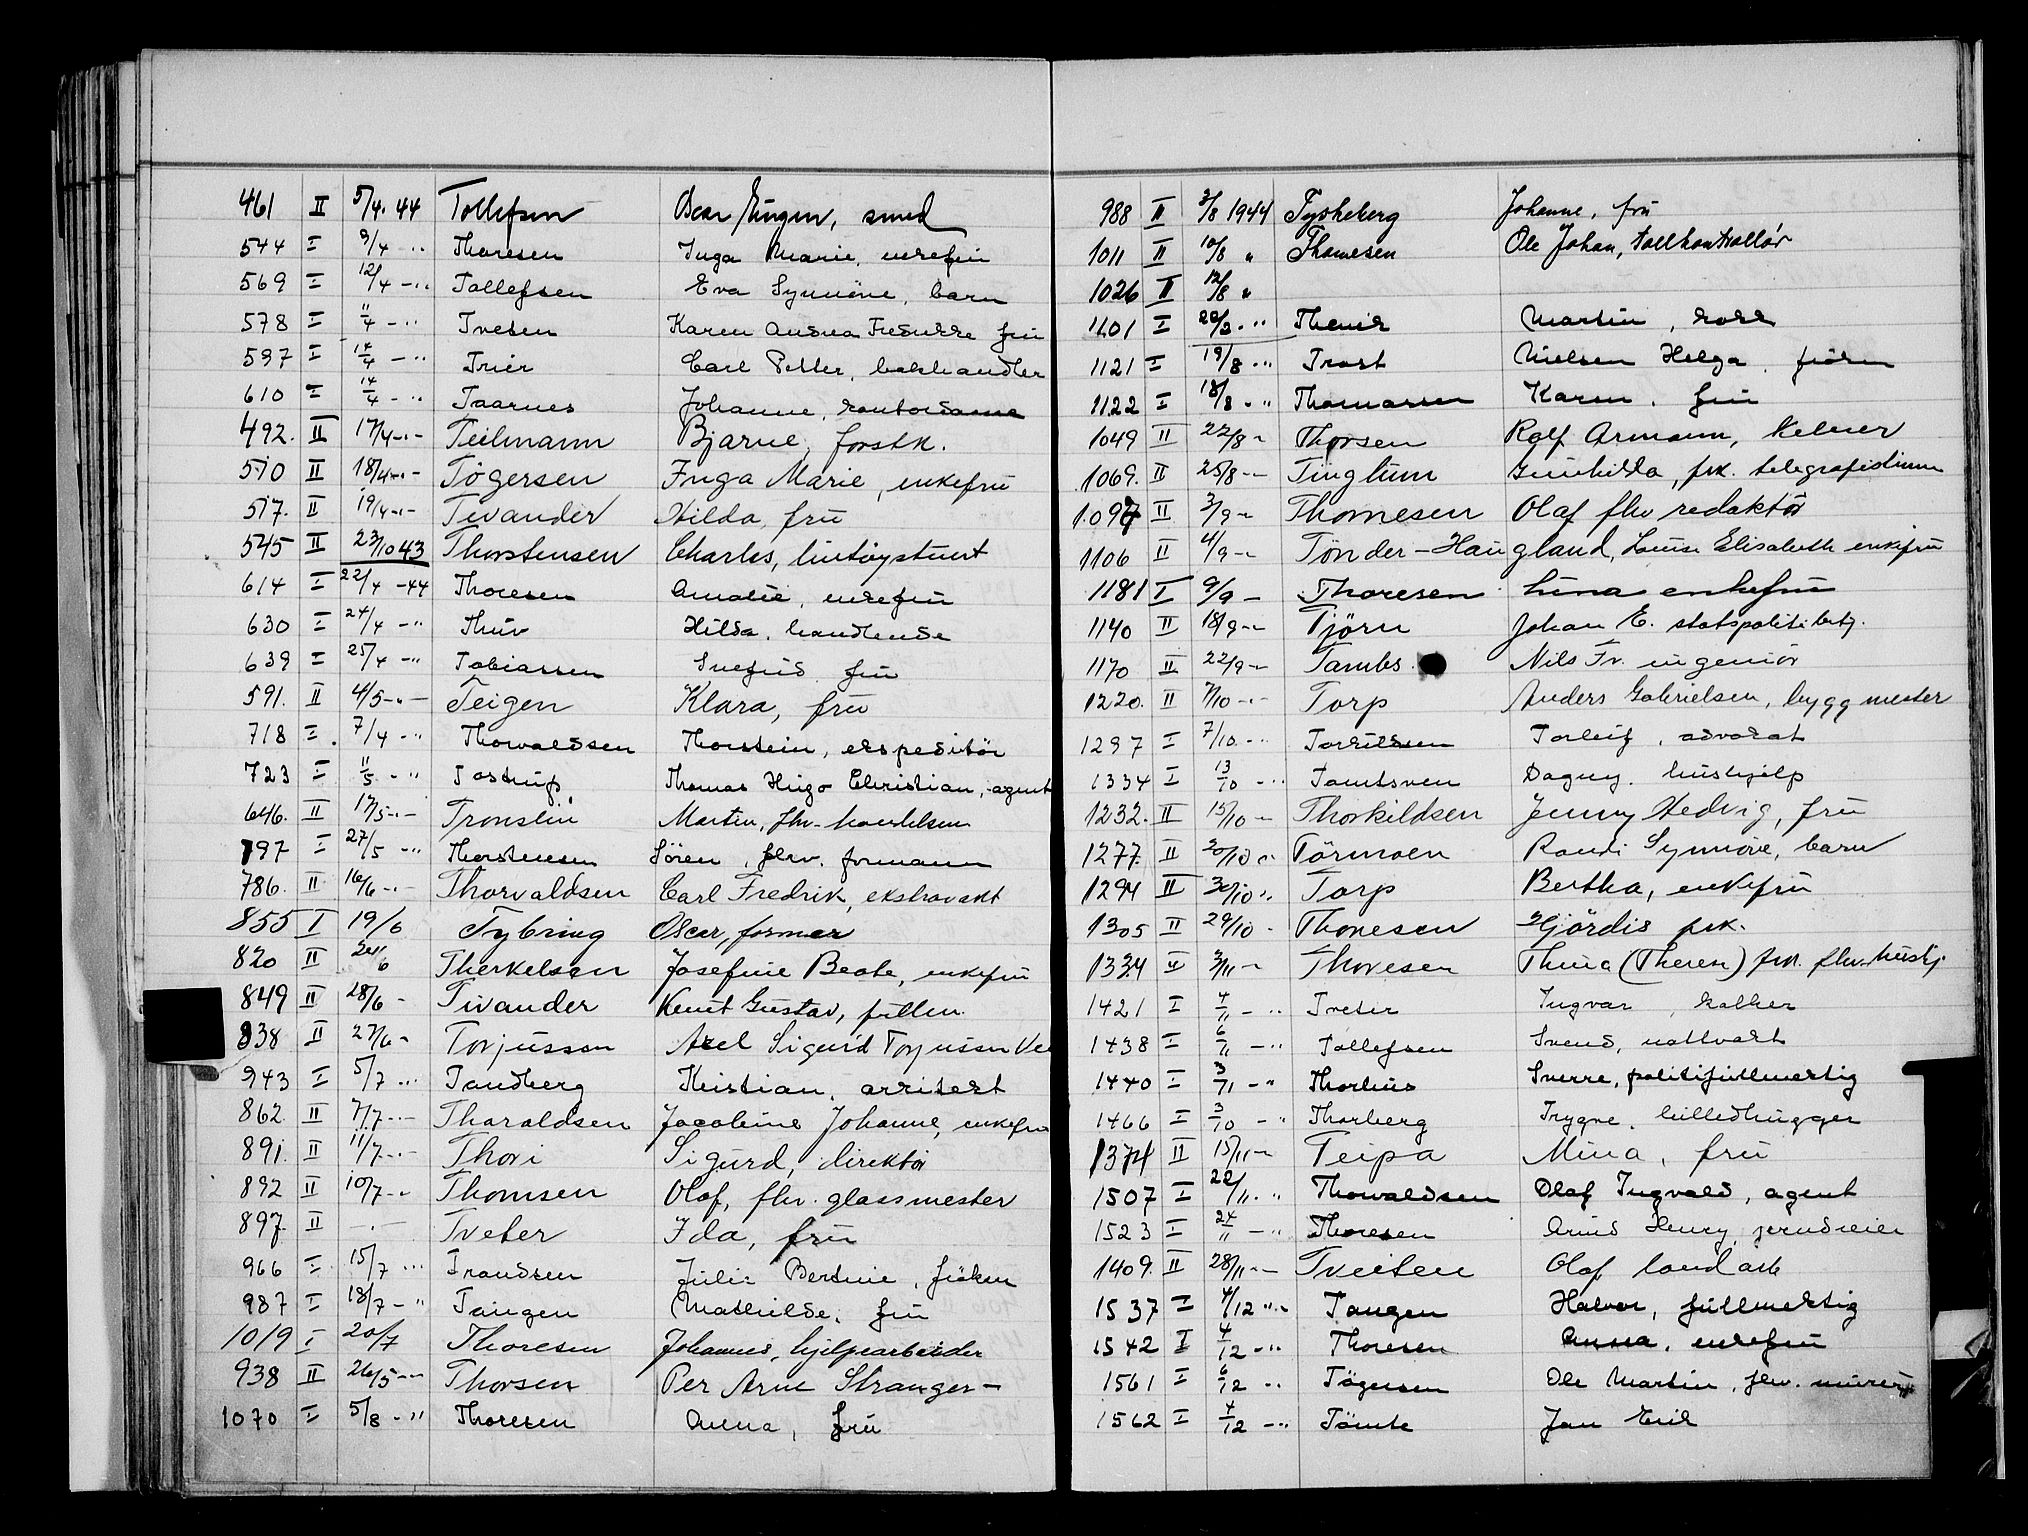 461 II 5/4. 44 Tollefsen Oscar Eugen, smed
544 I 9/4 -" Thoresen Inga Marie, enkefru
569 I 12/4 -" Tollefsen Eva Synnöve, barn
578 I 11/4 -" Tvesen Karen Andrea Fredrikke fru
597 I 14/4 -" Trier Carl Petter, bokhandler
610 I 14/4 -" Taarnes Johanne, kontordame
492. II 17/4 -"- Teilmann Bjarne, forstk.
510 II 18/4 -"- Tögersen Inga Marie, enkefru
517. II 19/4 -"- Tivander Hilda, fru
545 II 23/10 43 Thorstensen Charles, lintöystuert
614 I 22/4 -44 Thoresen Amalie, enkefru
630 I 24/4 -" Thuv Hilda, handlende
639 I 25/4 -" Tobiassen fru
591. II 4/5 -"- Teigen Klara, fru
718 I. 7/4 -" Thorvaldsen Thorstein, ekspeditör
723 I 11/5 -" Tostrup Thomas Hugo Christian, agent
646. II 17/5 -"- Tronslin Martin, fhv.
797 I 27/5 -" Thorstensen Sören, fhv. formann
786. II 16/6 -"- Thorvaldsen Carl Fredrik, ekstravakt
855 I 19/6 Tybring Oscar, former
820 II 24/6 Therkelsen Josefine Beate, enkefru
849 II 28/6 - Tivander Knut Gustav, fullm.
838 II 27/6 - Torjussen Axel Sigurd Torjussen
943 I 5/7 -" Tandberg Kristian, arkitekt
862. II 7/7 -"- Tharaldsen Jacobine Johanne, enkefru
891. II 11/7 -"- Thori Sigurd, direktör
892 II 10/7 -" Thomsen Olaf, fhv. glassmester
897. II -"- Tveter Ida, fru
966 I 15/7 -" Trandsen Julie Bertine, fröken
987 I 18/7 -" Tangen Mathilde, fru
1019 I 20/7 Thoresen Johannes, hjelpearbeider
938 II 26/5 -" Thorsen Per Arne Stranger-
1070 I 5/8 -" Thoresen Anna, fru
988 II 3/8 1944 Tyskeberg Johanne, fru
1011 II 10/8 " Thomesen Ole Johan, tollkontrollör
1026 II 12/8 "
1101 I -" Martin, kokk
1121 I 19/8 -" Trost Nielsen Helga, fröken
1122 I 18/8 -" Thomassen Karen, fru
1049 II 22/8 - Thorsen Rolf Armann, kelner
1069. II 25/8 -- Tinglum Gunhilda, frk. telegrafistinne
1097 II 3/9 - Thomesen Olaf fhv redaktör
1106 II 4/9 -- Tönder-Haugland, Louise Elisabeth enkefru
1181 I 9/9 - Thoresen Lina enkefru
1140 II 18/9 -- Tjörn Johan E. statspolitibetj.
1170 II 22/9 -- Tambs Nils Fr. ingeniör
1220. II 7/10 -"- Torp Anders Gabrielsen, byggmester
1297 I 7/10. -" Torkildsen Torleif, advokat
1334 I 13/10 -" Tomtsven Dagny, hushjelp
1232. II 15/10 -" Thorkildsen Jenny Hedvig, fru
1277. II 20/10 -" Törmoen Randi Synnöve, barn
1294 II 30/10 ". Torp Bertha, enkefru
1305 II 29/10 - Thoresen Hjördis frk.
1334 II 3/11 -- Thoresen Thina (Therese) frk. fhv. hushj.
1421 I 4/11 -" Tveter Ingvar, kalker
1438 I 6/11 -" Tollefsen Svend, nattvakt
1440 I 3/11 -" Thorhus Sverre, politifullmektig
1466 I 3/10 -" Thorberg Trygve, billedhugger
1374 II 15/11 -- Teipa Mina, fru
1507 I 22/11. " Thorvaldsen Olaf Ingvald, agent
1523 I 24/11 -" Thoresen Arnd Henry, jernsreier
1409. II 28/11 -- Tveiten Olaf landark
1537 I 4/12 "" Tangen Halvor, fullmektig
1542 I 4/12 -" Thoresen Anna, enkefru
1561 I 6/12 " Tögersen Ole Martin, fhv. murer
1562 I 4/12 -" Tömte Jan Erik